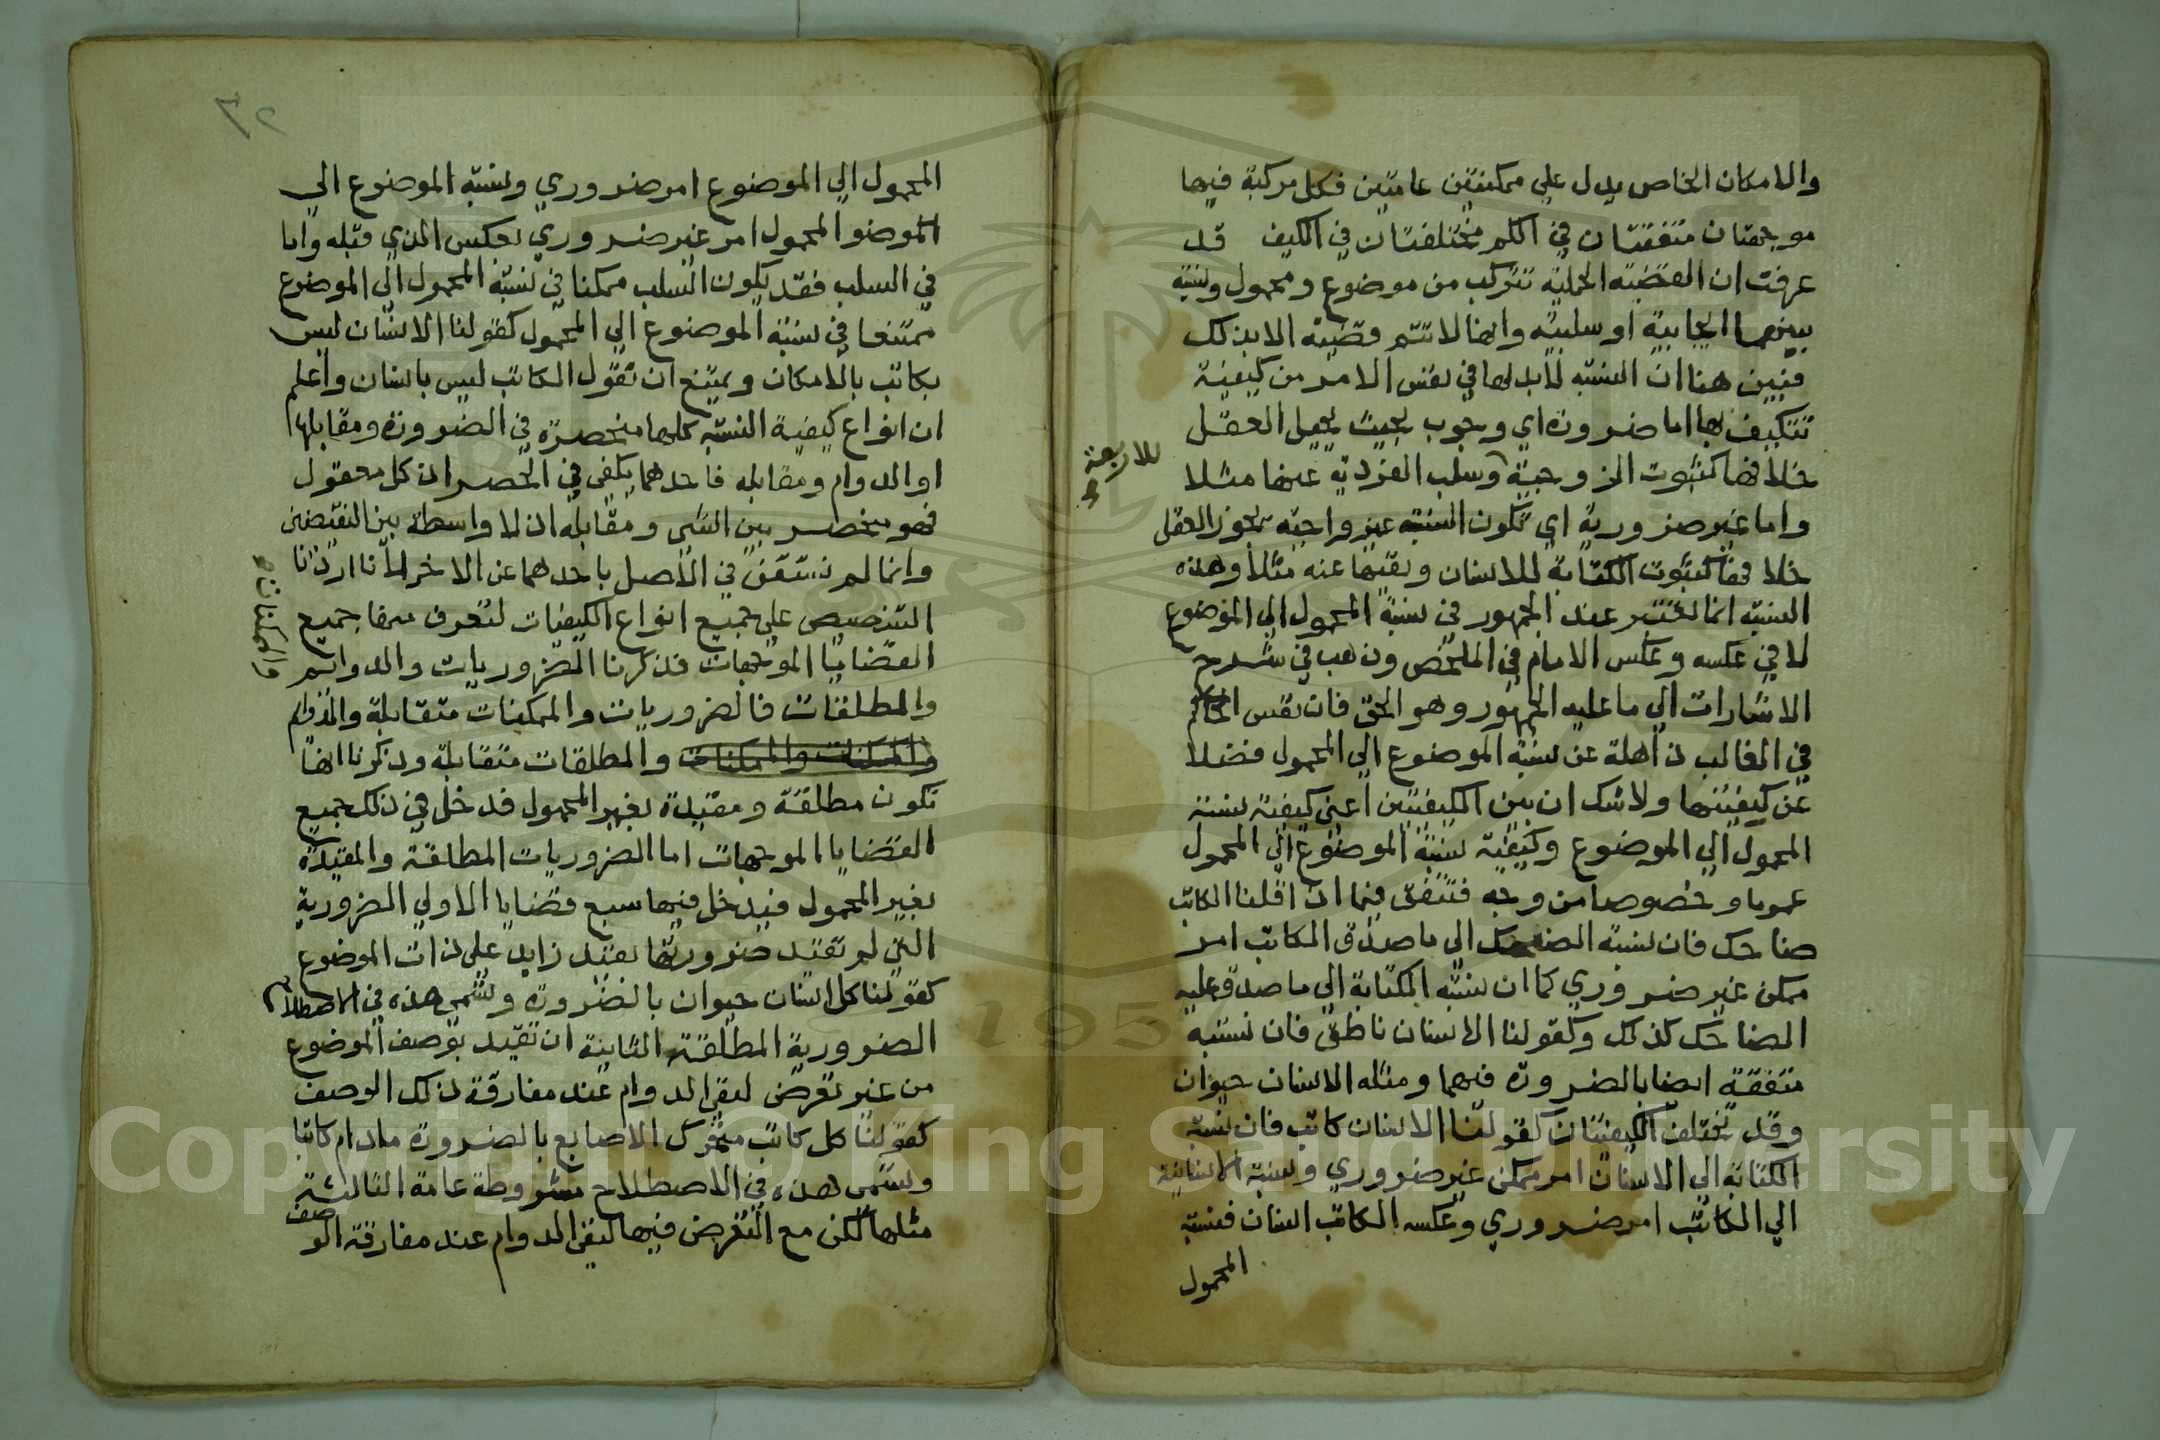 والامكان الخاص يدل علي ممكنتين عامتين فكل مركبة فيها
موجهتان متفقتان في الكم مختلفتان في الكيف قد
عرفت ان القضية الحملية تتركب من موضوع ومحمول ونسبة
بينهما ايجابية او سلبية وانها لا تتم قضية الا بذلك
فنبين هنا ان النسبة لا بد لها في نفس الامر من كيفية
تتكيف بها اما ضرورة اي وجوب بحيث يحيل العقل
خلافها كثبوت الزوجية وسلب الفردية عنها مثلا
للاربعة
واما غير ضرورية اي تكون النسبة غير واجبة يجوز العقل
خلافها كثبوت الكتابة للانسان ونفيها عنه مثلا وهذه
النسبة انما تعتبر عند الجمهور في نسبة المحمول الي الموضوع
لا في عكسه وعكس الامام في الملخص وذهب في شرح
الاشارات الي ما عليه الجمهور وهو الحق فان نفس الحاكم
في الغالب ذاهلة عن نسبة الموضوع الي المحمول فضلا
عن كيفيتها ولا شك ان بين الكيفيتين اعني كيفية نسبة
المحمول الي الموضوع وكيفية نسبة الموضوع الي المحمول
عموما وخصوصا من وجه فتتفق فيما اذا قلنا الكاتب
ضاحك فان نسبة الضحك الي ما صدق الكاتب امر
ممكن غير ضروري كما ان نسبة الكتابة الي ما صدق عليه
الضاحك كذلك وكقولنا الانسان ناطق فان نسبته
متفقة ايضا بالضرورة فيهما ومثله الانسان حيوان
وقد تختلف الكيفيتان كقولنا الانسان كاتب فان نسبة
الكتابة الي الانسان امر ممكن غير ضروري ونسبة الانسانية
الي الكاتب امر ضروري وعكسه الكاتب انسان فنسبة
المحمول
٢٦
المحمول الي الموضوع امر ضروري ونسبة الموضوع الي
الموضو المحمول امر غير ضروري بعكس الذي قبله واما
في السلب فقد يكون السلب ممكنا في نسبة المحمول الي الموضوع
ممتنعا في نسبة الموضوع الي المحمول كقولنا الانسان ليس
بكاتب بالامكان ويمتنع ان تقول الكاتب ليس بانسان واعلم
ان انواع كيفية النسبة كلها منحصرة في الضرورة ومقابلها
او الدوام ومقابله فاحدهما يكفي في الحصر اذ كل معقول
فهو منحصر بين الشي ومقابله اذ لا واسطة بين النقيضين
وانما لم نستغن في الاصل باحدهما عن الاخر لانا اردنا
التنصيص علي جميع انواع الكيفيات لتعرف بها جميع
القضايا الموجهات فذكرنا الضروريات والدوائم
والممكنات
والمطلقات فالضروريات والممكنات متقابلة والدوام
والمطلقات متقابلة وذكرنا انها
تكون مطلقة ومقيدة بغير المحمول فدخل في ذلك جميع
القضايا الموجهات اما الضروريات المطلقة والمقيدة
بغير المحمول فيدخل فيها سبع قضايا الاولي الضرورية
التي لم تقيد ضرورتها بقيد زايد علي ذات الموضوع
كقولنا كل انسان حيوان بالضرورة وتسمي هذه في الاصطلاح
الضرورية المطلقة الثانية ان تقيد بوصف الموضوع
من غير تعرض لنفي الدوام عند مفارقة ذلك الوصف
كقولنا كل كاتب متحرك الاصابع بالضرورة مادام كاتبا
وتسمي هذه في الاصطلاح مشروطة عامة الثالثة
مثلها لكن مع التعرض فيها لنفي الدوام عند مفارقة الوصف
Copyright © King Saud University
1957